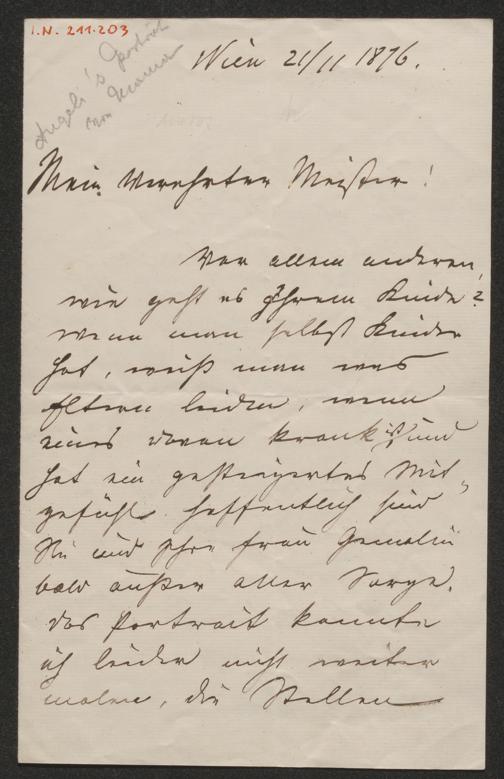 I.N. 211.203
Angeli's Porträt
von Mama
Wien 21/11 1876.
Mein verehrter Meister!
Vor allem anderen,
wie geht es Ihrem Kinde?
wenn man selbst Kinder
hat, weiß man was
Eltern leiden, wenn
eines davon krank ist, und
hat ein gesteigertes Mit-
gefühl. Hoffentlich sind
Sie und Ihre Frau Gemalin
bald außer aller Sorge.
Das Portrait konnte
ich leider nicht weiter
malen, die Stellen